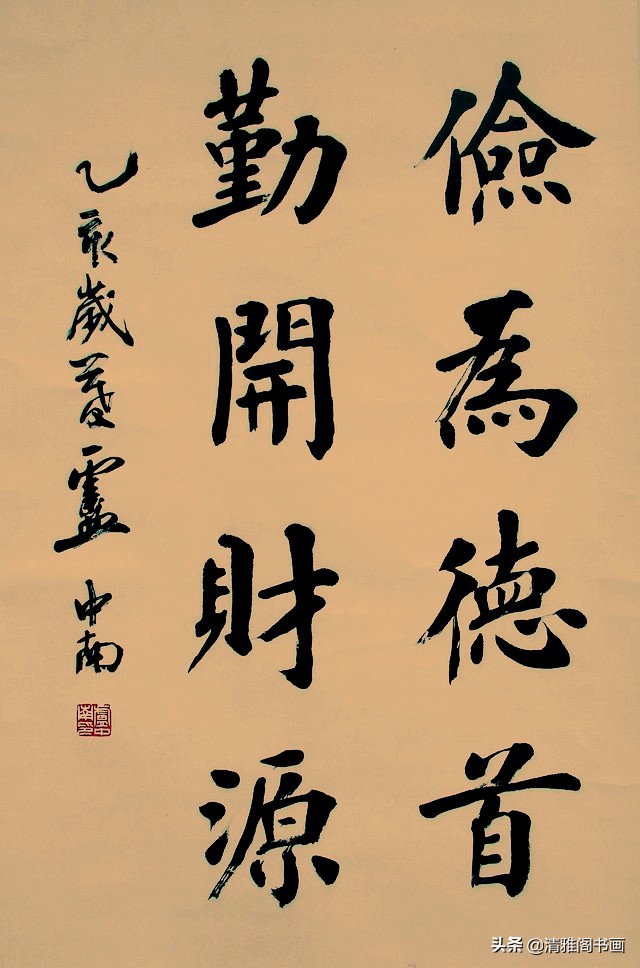 儉為德首
勤開財源
乙亥歲 盧中南
盧中南印
头条 @清雅阁书画